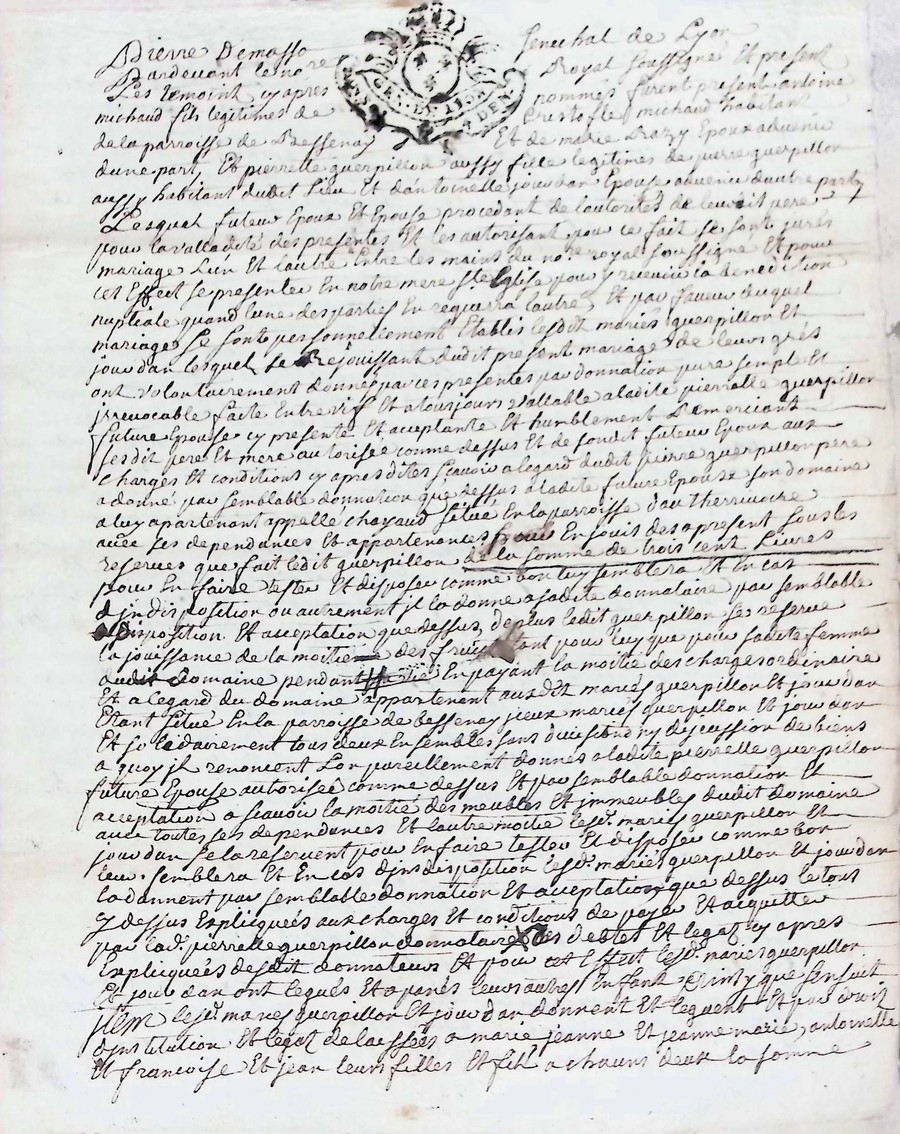 Pierre Demasso Senechal de Lyon
Pardevant le no.re Royal soussigné Et present
Les temoint cy apres nommés furent present antoine
michaud fils legitimes de Cristofle michaud habitant
de la parroisse de Bessenay Et de marie Razy Epoux advenir
dune part, Et pierrette guerpillon aussy fille legitimes de pierre guerpillon
aussy habitant dudit Lieu Et dantoinette jourdan Epouse advenir dautre part,
Lesquel futeur Epoux Et Epouse procedant de lautorités de leurdit pere
pour la valladité des presentes Et les autorisant pour ce fait se sont jurés
mariage Lun Et lautre Entre les mains du no.re royal soussigné Et pour
cet Effect se presenter En notre mere Ste Eglise pour y recevoir la benediction
nuptiale quand lune des parties En requerra lautre, Et par faveur duquel
mariage se sonte personnellement Etablis lesdit mariés guerpillon Et
jourdan lesquel se Rejouissant dudit present mariage de leurs grés
ont volontairement donnés par ces presentes par donnation pure semple Et
jrrevocable faite Entre vif Et a tousjours vallable a ladite pierrette guerpillon
future Epouse cy presente Et acceptante Et humblement Remerciant
sesdit pere Et mere autorisée comme dessus Et de sondit futeur Epoux aux
charges Et conditions cy apres dites Scavoir a legard dudit pierre guerpillon pere
a donné par semblable donnation que dessus a ladite future Epouse son domaine
a luy apartenant appellé chavaud situé En la parroisse dautherivoire
avec ses dependances Et appartenances pour En jouir des apresent sous les
reserves que fait ledit guerpillon de la somme de trois cent Livres
pour En faire tester Et disposer comme bon luy semblera Et En cas
djndisposition ou autrement jl la donne a ladite donnataire par semblable
disposition Et acceptation que dessus, de plus ledit guerpillon se reserve
la jouissance de la moitie des fruit tant pour luy que pour sadite femme
audit domaine pendant En payant la moitie des charges ordinaire
Et a legard du domaine appartenent ausdit mariés guerpillon Et jourdan
Etant situé En la parroisse de bessenay jceux mariés guerpillon Et jourdan
Et solidairement tous deux Ensembles sans division ny discussion de biens
a quoy jl renoncent Lon pareillement donnés a ladite pierrette guerpillon
future Epouse autorisée comme dessus Et par semblable donnation Et
acceptation a scavoir la moitié des meubles Et jmmeubles dudit domaine
avec toutes ses dependances Et lautre moitie lesd. mariés guerpillon Et
jourdan se la reservent pour En faire tester Et disposer comme bon
leur semblera Et En cas djndisposition lesd. mariés guerpillon Et jourdan
la donnent par semblable donnation Et acceptation que dessus le tous
cy dessus Expliquées aux charges Et conditions de payer Et acquitter
par lad. pierrette guerpillon donnataire les debtes Et legat cy apres
Expliquées desdit donnateurs Et pour cet Effect lesd. mariés guerpillon
Et jourdan ont legués Et a leurs autres Enfant que senssuit
jtem lesd. mariés guerpillon Et jourdan donnent Et leguent Et par droit
djnstitution Et legat delaissés a marie jeanne Et jeanne marie, antoinette
Et francoise Et jean leurs filles Et fils a chacuns deux la somme